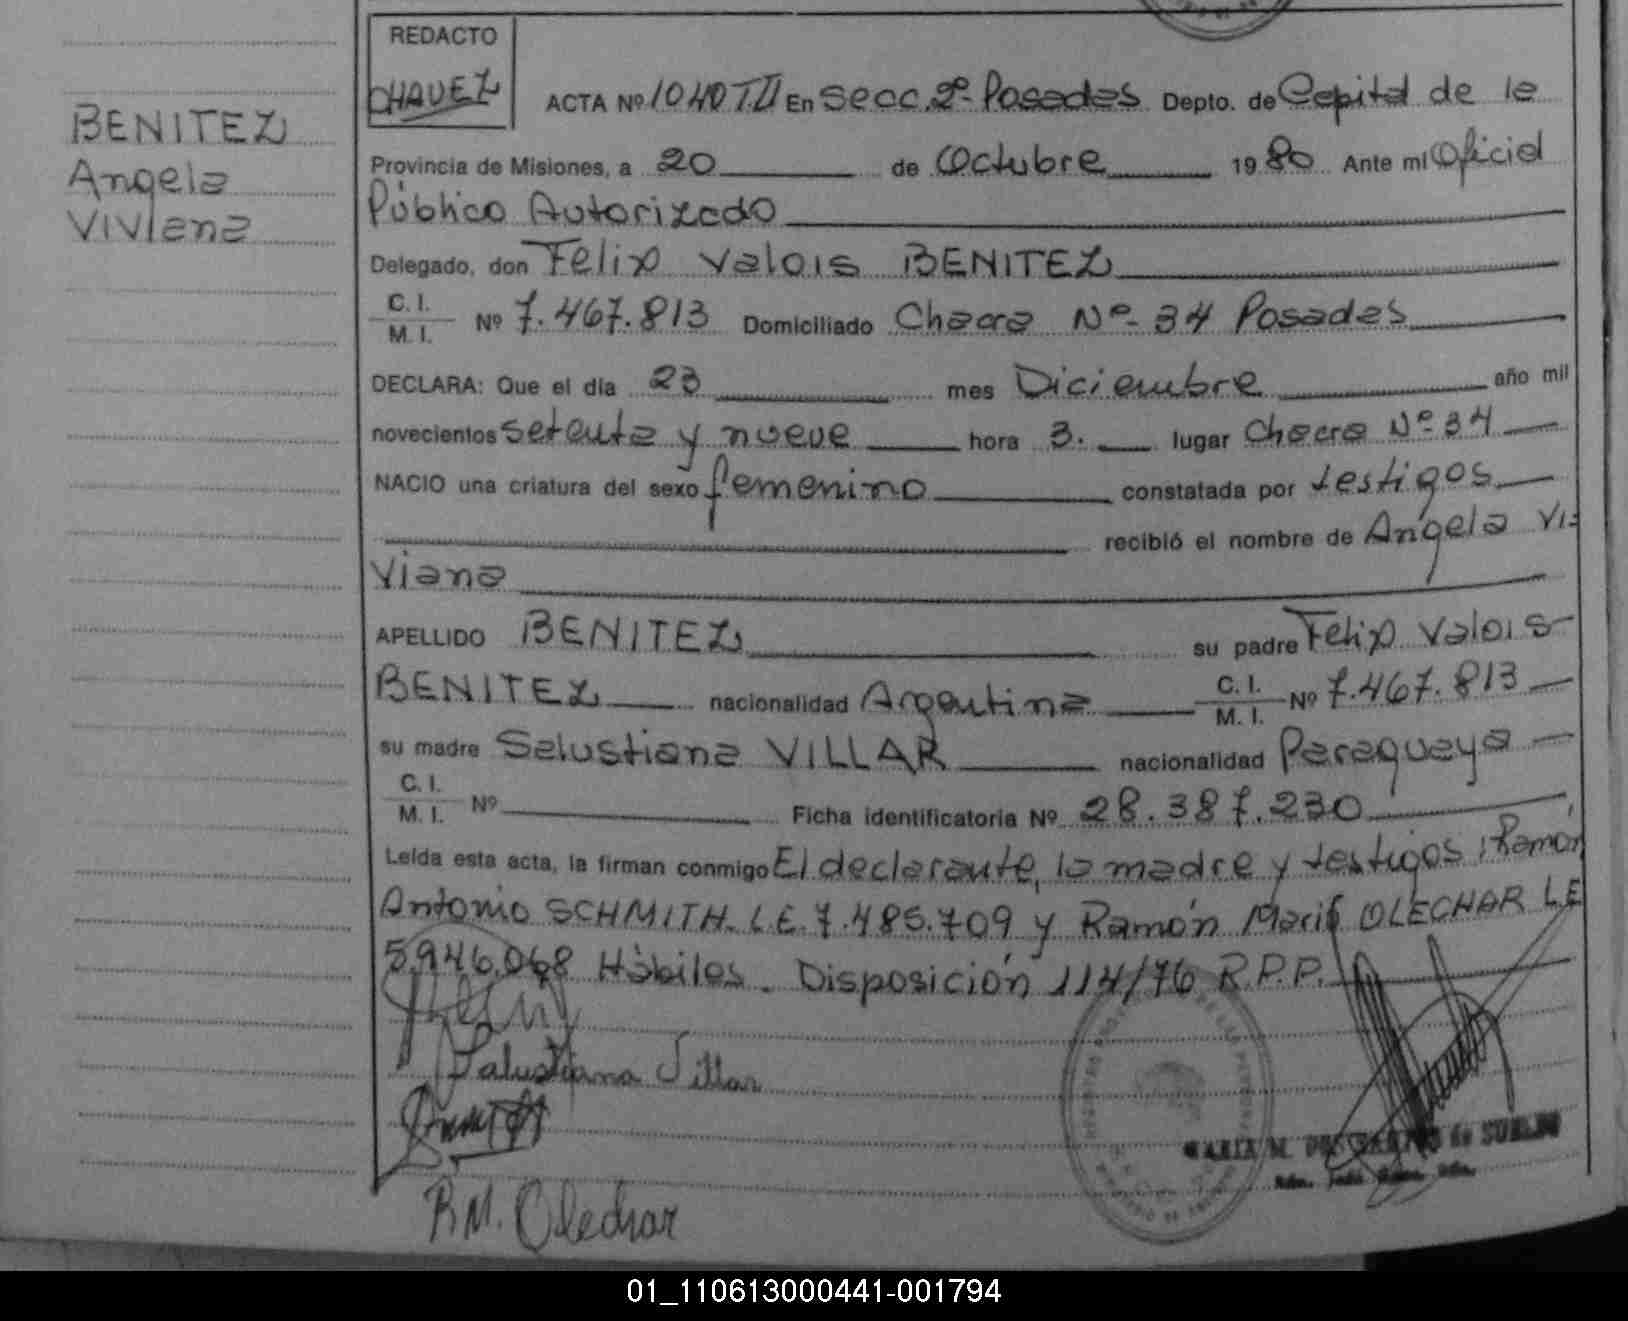 REDACTO
CHAVEZ
BENITEZ
Angela
Viviana
ACTA Nº 1040 TII En Secc. 2º- Posadas Depto. de Capital de la
Provincia de Misiones, a 20 de Octubre 1980 Ante mi Oficial
Público Autorizado
Delegado, don Felix Valois BENITEZ
C. I. M. I. Nº 7.467.813 Domiciliado Chacra Nº- 34 Posadas
DECLARA: Que el día 23 mes Diciembre año mil
novecientos setenta y nueve hora 3. lugar Chacra Nº- 34
NACIO una criatura del sexo femenino constatada por testigos
recibió el nombre de Angela Vi-
viana
APELLIDO BENITEZ su padre Felix Valois
BENITEZ nacionalidad Argentina C. I. M. I. Nº 7.467.813
su madre Salustiana VILLAR nacionalidad Paraguaya
C. I. M. I. Nº Ficha identificatoria Nº 28.387.230
Leída esta acta, la firman conmigo El declarante, la madre y testigos: Ramón
Antonio SCHMITH. L.E. 7.485.709 y Ramón María OLECHAR LE
5.946.068 Hábiles. Disposición 114/76 R.P.P.
Salustiana Villar
MARIA M. de SUELDO
R M. Olechar
01_110613000441-001794